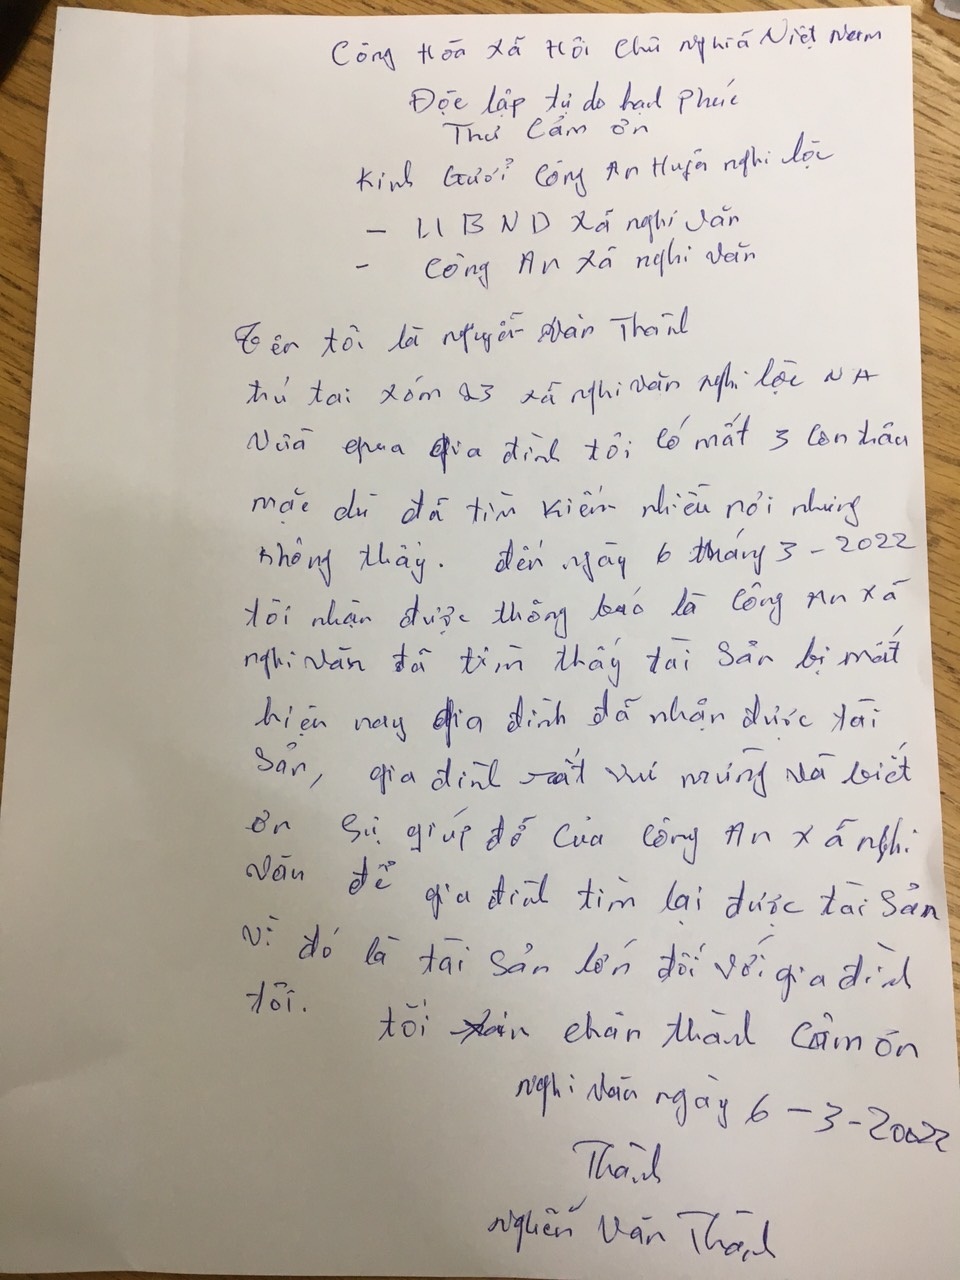 Cộng Hóa xã Hội Chủ nghĩa Việt Nam
Độc lập tự do hạnh phúc
Thư Cảm ơn
Kính Gửi Công An Huyện nghi lộc
- UBND xã nghi văn
- Công An xã nghi văn
Tên tôi là Nguyễn Văn Thành
trú tại xóm 23 xã nghi văn nghi lộc NA
Vừa qua gia đình tôi có mất 3 con trâu
mặc dù đã tìm kiếm nhiều nơi nhưng
không thấy. đến ngày 6 tháng 3 - 2022
tôi nhận được thông báo là Công An xã
nghi văn đã tìm thấy tài sản bị mất
hiện nay gia đình đã nhận được tài
sản, gia đình rất vui mừng và biết
ơn sự giúp đỡ của Công An xã nghi
văn để gia đình tìm lại được tài sản
vì đó là tài sản lớn đối với gia đình
tôi.
tôi xin chân thành Cảm ơn
nghi văn ngày 6 - 3 - 2022
Thành
Nguyễn Văn Thành